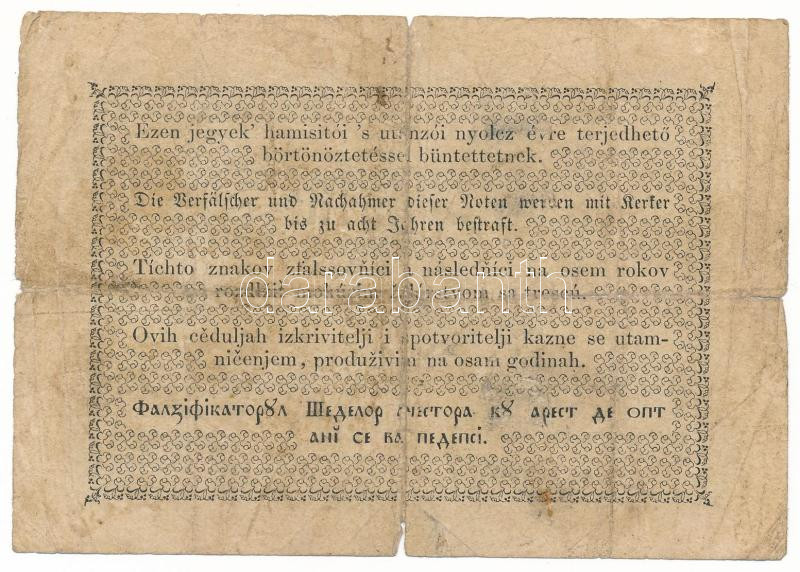 Ezen jegyek' hamisitói 's utánzói nyolcz évre terjedhető
börtönöztetéssel büntettetnek.
Die Verfälscher und Nachahmer dieser Noten werden mit Kerker
bis zu acht Jahren bestraft.
Tíchto znakov zfalssovňíci a následňíci na osem rokov
sa trescú.
darabanth
Ovih cěduljah izkrivitelji i spotvoritelji kazne se utam-
ničenjem, produživim na osam godinah.
Фалціфікаторꙋл Шеделор ачестора кꙋ арест де опт
анĭ се ва педепсі.